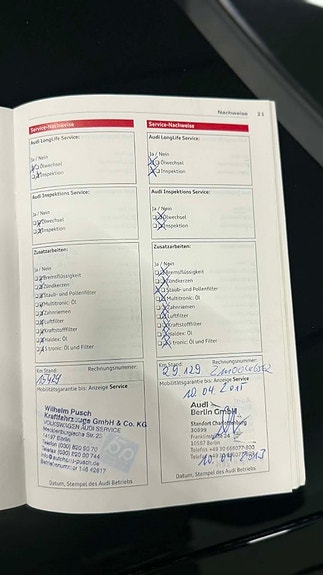 Nachweise 21
Service-Nachweise
Audi LongLife Service:
Ja / Nein
Ölwechsel
Inspektion
Audi Inspektions Service:
Ja / Nein
Ölwechsel
Inspektion
Zusatzarbeiten:
Ja / Nein
Bremsflüssigkeit
Zündkerzen
Staub- und Pollenfilter
Multitronic: Öl
Zahnriemen
Luftfilter
Kraftstofffilter
Haldex: Öl
S tronic: Öl und Filter
Km Stand: Rechnungsnummer:
Mobilitätsgarantie bis: Anzeige Service
Wilhelm Pusch
Kraftfahrzeuge GmbH & Co. KG
VOLKSWAGEN AUDI SERVICE
Mecklenburgische Str. 23
14197 Berlin
Datum, Stempel des Audi Betriebs
Service-Nachweise
Audi LongLife Service:
Ja / Nein
Ölwechsel
Inspektion
Audi Inspektions Service:
Ja / Nein
Ölwechsel
Inspektion
Zusatzarbeiten:
Ja / Nein
Bremsflüssigkeit
Zündkerzen
Staub- und Pollenfilter
Multitronic: Öl
Zahnriemen
Luftfilter
Kraftstofffilter
Haldex: Öl
S tronic: Öl und Filter
Km Stand: Rechnungsnummer:
29.129
Mobilitätsgarantie bis: Anzeige Service
10.04.2015
Audi
Berlin GmbH
Standort Charlottenburg
Franklinstraße 24
10587 Berlin
10.04.2013
Datum, Stempel des Audi Betriebs